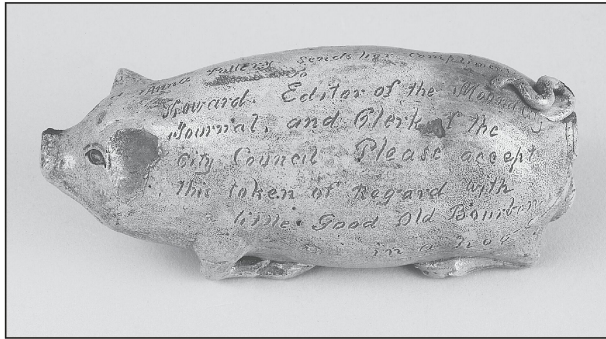 Anna Pottery sends his compliments
Howard. Editor of the Mound City
Journal, and Clerk of the
City Council Please accept
this token of Regard with
little Good Old Bourbon
in a hog